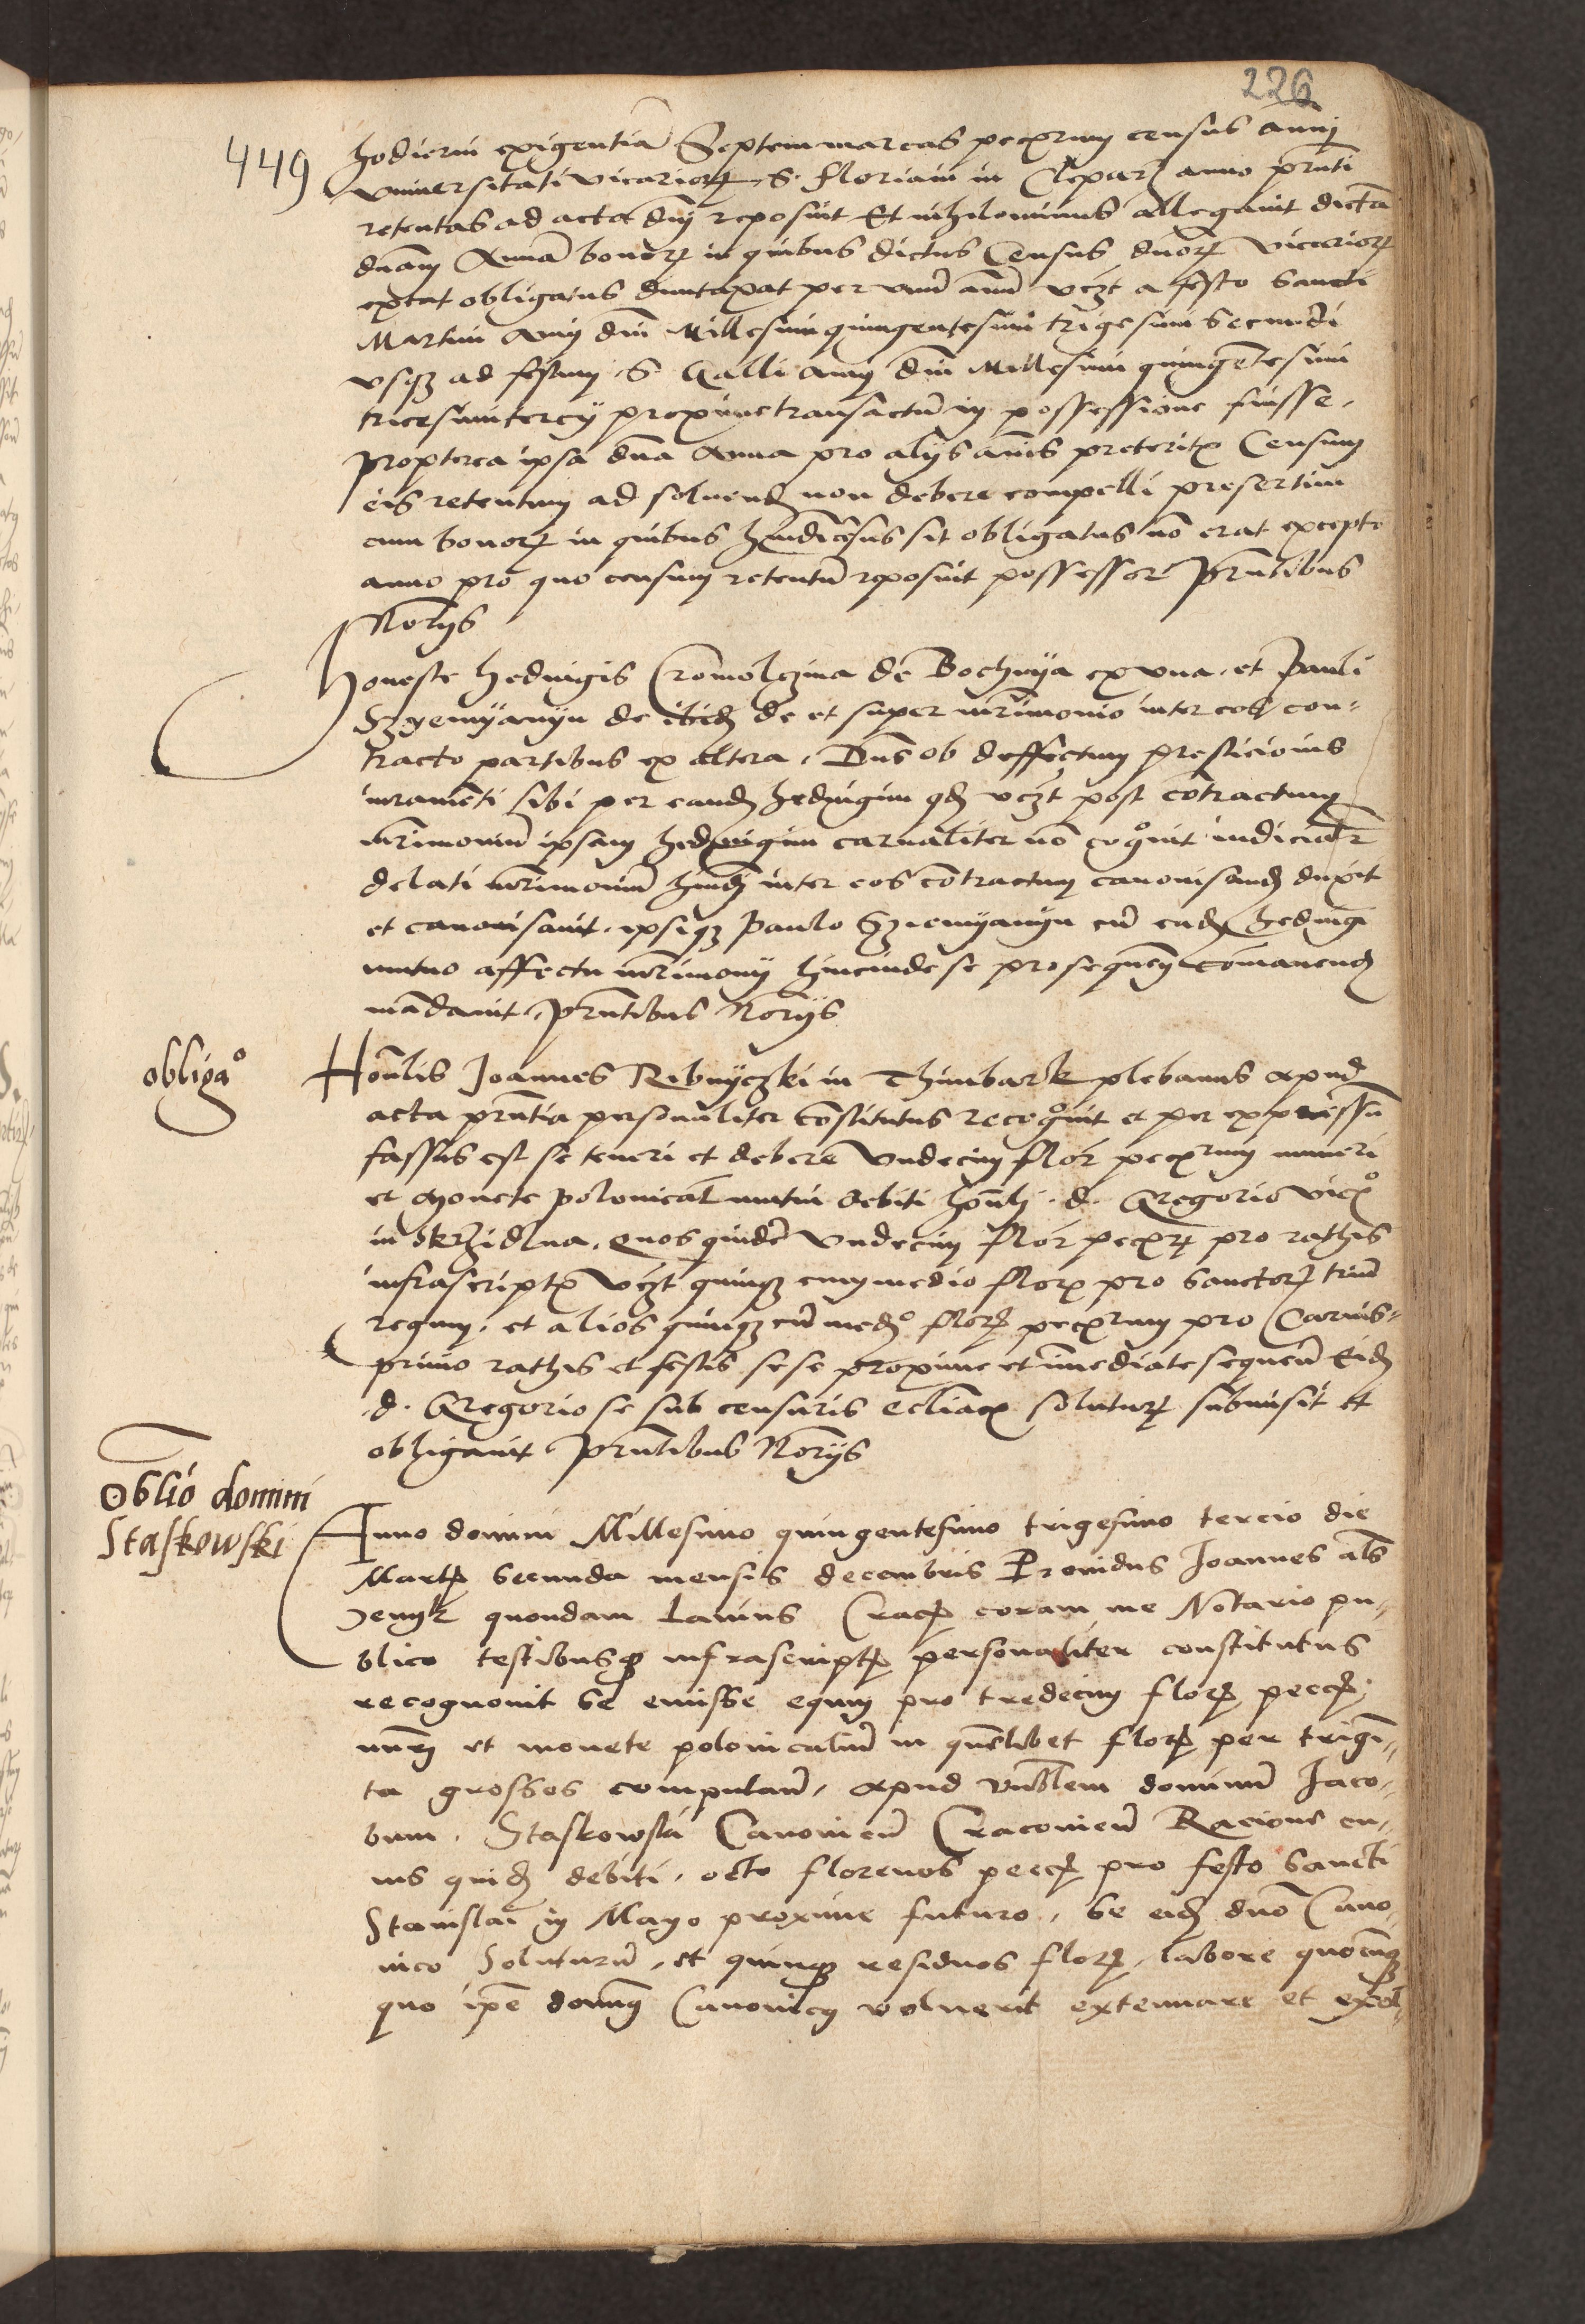 226
449
hodierni exigentia Septem marcas pecuniarum census annui
universitati vicariorum S. Floriani in Cleparz anno presenti
retentas ad acta domini reposuit Et nihilominus allegavit dictam
dnam Annam bonorum in quibus dictus Census dnorum vicariorum
extat obligatus duntaxat per unum annum vzt a festo Sancti
Martini Anni dni Millesimi quingentesimi trigesimi secundi
usque ad festum S. Galli Anni dni Millesimi quingentesimi
tricesimi tercii proxime transactum in possessione fuisse.
Propterea ipsa dna Anna pro aliis annis preteritis Censum
eis retentum ad solvendum non debere compelli presertim
cum bonorum in quibus huiusmodi census sit obligatus non erat excepto
anno pro quo censum retentum reposuit possessor Prntibus
Norijs
Honeste Hedvigis Cromolczina de Bochnya ex una et Pauli
Szyemyanyn de ibidem de et super mrimonio inter eos con-
tracto partibus ex altera. Dns ob deffectum presticionis
iuramenti sibi per eandem Hedvigim quod vzt post contractum
mrimonium ipsam Hedvigim carnaliter non cognovit iudicialiter
delati mrimonium huiusmodi inter eos contractum canonisandum duxit
et canonisavit, ipsique Paulo Szyemyanyn cum eadem Hedvigi
mutuo affectu mrimonii hincinde se prosequen commanendum
mandavit. Prntibus Norijs
obligao
Honlis Joannes Ribnyczki in Thimbark plebanus apud
acta prntia personaliter constitutus recognovit et per expressum
fassus est se teneri et debere Undecim flor pecuniarum numeri
et monete polonicalis mutui debiti honli d. Gregorio vicario
in Skrzidlna. Quos quidem Undecim flor pecuniarum pro rathis
infrascriptis vzt quinque cum medio flor pro Sanctorum trium
regum et alios quinque cum medio flor pecuniarum pro Carnis-
privio rathis et festis sese proxime et immediate sequen Eidem
d. Gregorio se sub censuris ecclesiasticis soluturum submisit et
obligavit Prntibus Norijs
Oblio domini
Staskowski
Anno domini Millesimo quingentesimo trigesimo tercio die
Martis Secunda mensis decembris Providus Joannes als
quondam Lanius Crac coram me Notario pu-
blico testibusque infrascriptis personaliter constitutus
recognovit se emisse equum pro tredecim flor pecc
numeri et monete polonicalium in quemlibet flor per trigin-
ta grossos computan. apud vnblem dominum Jaco-
bum Staskowski Canonicum Cracovien Racione cu-
ius quidem debiti. octo florenos pecc pro festo Sancti
Stanislai in Mayo proxime futuro. Se eidem dno Cano-
nico Soluturum, et quinque residuos flor. labore quocunque
quo ipse dominus Canonicus voluerit extenuare et exol-